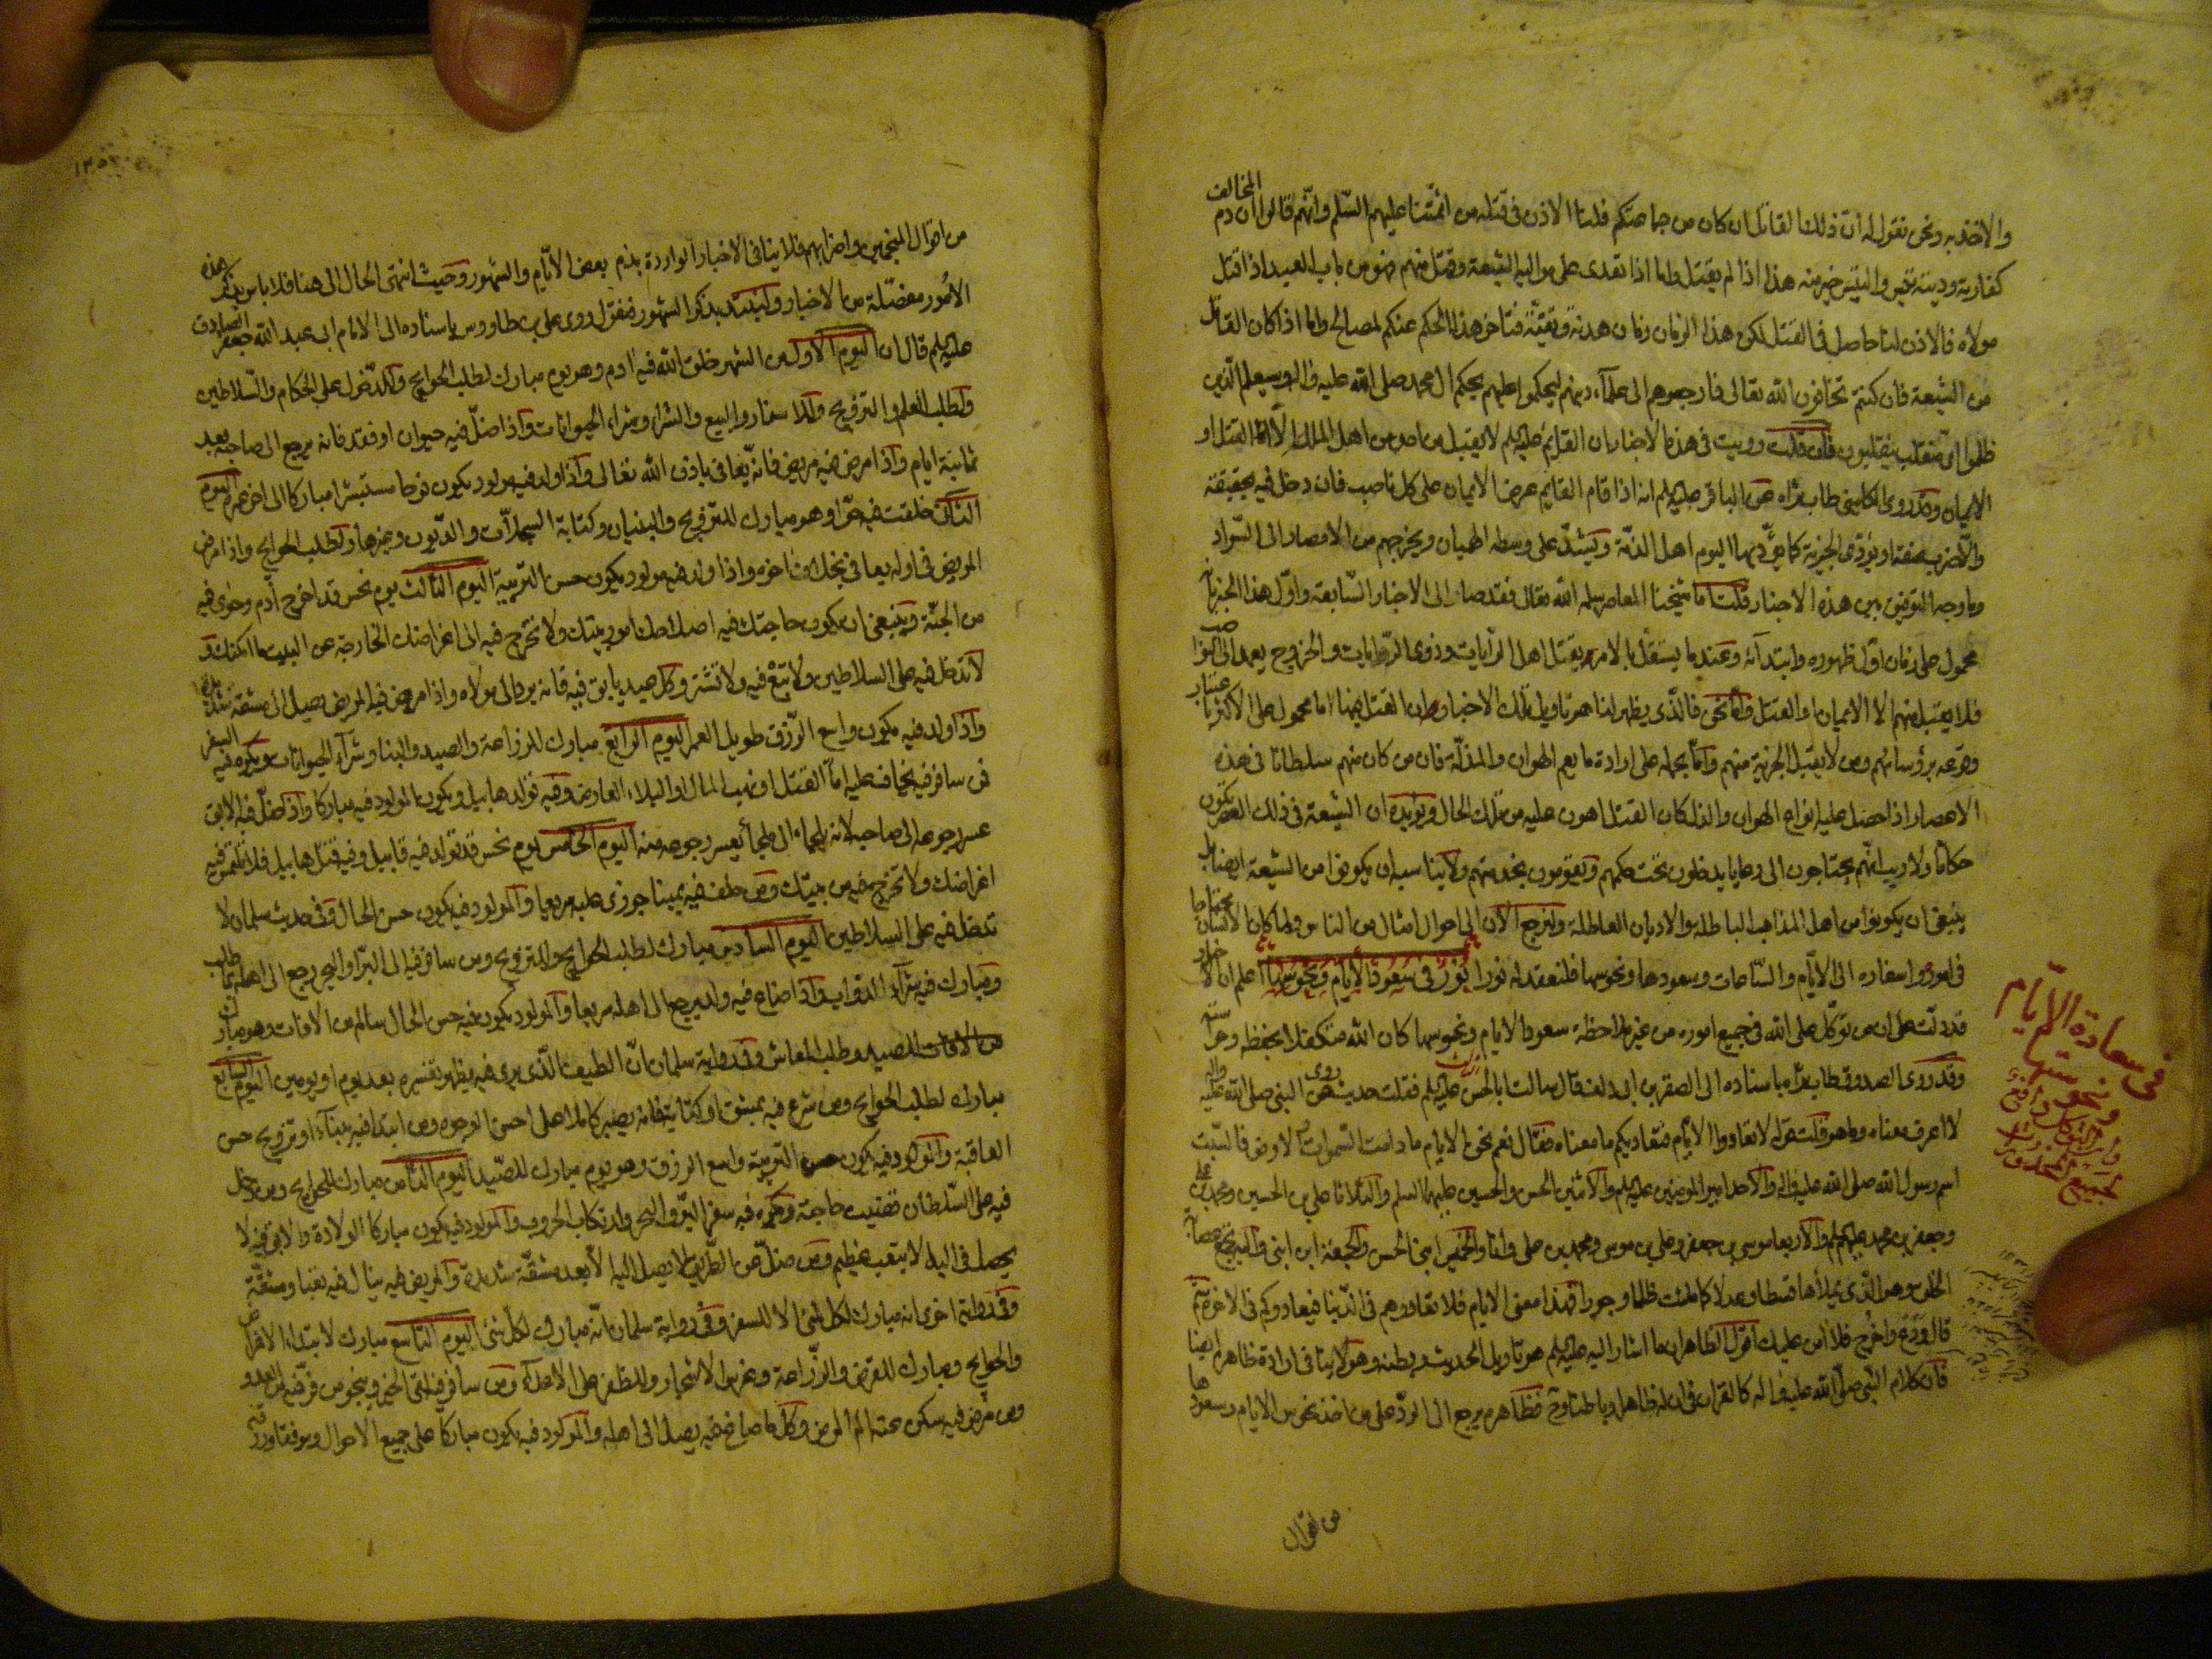 المخالف
والاخذ به ونحن نقول له ان ذلك القاتل ان كان من جماعتكم فلنا الاذن في قتله من ائمتنا عليهم السلم وانهم قالوا ان دم
كفارته وديته تيس والتيس خير منه هذا اذا لم يقتل واما اذا تعدى على موالينا الشيعة وقتل منهم فهو من باب العبد اذا قتل
مولاه فالاذن لنا حاصل في القتل لكن هذا الزمان زمان هدنة وتقية فتاخر هذا الحكم عنكم لمصالح واما اذا كان القاتل
من الشيعة فان كنتم تخافون الله تعالى فارجعوهم الى علماء دينهم ليحكموا عليهم بحكم ال محمد صلى الله عليه واله وسيعلم الذين
ظلموا اي منقلب ينقلبون فان قلت رويت في هذه الاخبار ان القائم عليه السلم لا يقبل من احد من اهل الملل الا القتل او
الايمان وقد روى الكليني طاب ثراه عن الباقر عليه السلم انه اذا قام القايم عرض الايمان على كل ناصب فان دخل فيه بحقيقة
والا ضرب عنقه او يؤدي الجزية كما يؤديها اليوم اهل الذمة ويشد على وسطه الهميان ويخرجهم من الامصار الى السواد
وما وجه التوفيق بين هذه الاخبار قلت اما شيخنا المعاصر سلمه الله تعالى فقد صار الى الاخبار السابقة واول هذا الخبر بانه
محمول على زمان اول ظهوره وابتدائه وعندما يستقل بالامر يقتل اهل الرايات وذوي الروايات والخروج يعمد الى النواصب
فلا يقبل منهم الا الايمان او القتل واما نحن فالذي يظهر لنا هو تاويل تلك الاخبار وان القتل فيها اما محمول على الاكثر باعتبار
وقوعه برؤسائهم ومن لا يقبل الجزية منهم واما بحمله على ارادة ما يعم الهوان والمذلة فان من كان منهم سلطانا في هذه
الاعصار اذا حصل عليه انواع الهوان والذل كان القتل اهون عليه من تلك الحال ويؤيده ان الشيعة في ذلك العصر يكونون
حكاما ولا ريب انهم يحتاجون الى رعايا يدخلون تحت حكمهم ويقومون بخدمتهم ولا يناسب ان يكونوا من الشيعة ايضا بل
ينبغي ان يكونوا من اهل المذاهب الباطلة والاديان العاطلة ولنرجع الان الى احوال امثال من الناس ولما كان الانسان محتاجا
في اموره واسفاره الى الايام والساعات وسعودها ونحوسها فلنعقد له نورا نور في سعود الايام ونحوسها اعلم ان الاخبار
قد دلت على ان من توكل على الله في جميع اموره من غير ملاحظة سعود الايام ونحوسها كان الله متكفلا بحفظه وحراسته
وقد روى الصدوق طاب ثراه باسناده الى الصقر بن ابي دلف قال سالت ابا الحسن عليه السلم فقلت حديث روى عن النبي صلى الله عليه واله
لا اعرف معناه وما هو قلت قوله لا تعادوا الايام فتعاديكم ما معناه فقال نعم نحن الايام ما دامت السموات والارض فالسبت
اسم رسول الله صلى الله عليه واله والاحد امير المؤمنين عليه السلم والاثنين الحسن والحسين عليهما السلم والثلاثا علي بن الحسين ومحمد بن علي
وجعفر بن محمد عليهم السلم والاربعا موسى بن جعفر وعلي بن موسى ومحمد بن علي وانا والخميس ابني الحسن والجمعة ابن ابني واليه تجتمع عصابة
الحق وهو الذي يملأها قسطا وعدلا كما ملئت ظلما وجورا فهذا معنى الايام فلا تعادوهم في الدنيا فيعادوكم في الاخرة ثم
قال ودع واخرج فلا امن عليك اقول الظاهر ان ما اشار اليه عليه السلم هو تاويل الحديث وبطنه وهو لا ينافي ارادة ظاهره ايضا
فان كلام النبي صلى الله عليه واله كالقران في ان له ظاهرا وباطنا وح فظاهره يرجع الى الرد على من اخذ نحوس الايام وسعودها
من اقوال
في سعادة الايام
ونحوستها
١٣٥
من اقوال المنجمين واضرابهم فلا ينافي الاخبار الواردة بذم بعض الايام والشهور وحيث انتهى الحال الى هنا فلا باس بذكر هذه
الامور مفصلة من الاخبار ولنبتد بذكر الشهور فنقول روى علي بن طاووس باسناده الى الامام ابي عبد الله جعفر الصادق
عليه السلم قال ان اليوم الاول من الشهر خلق الله فيه ادم وهو يوم مبارك لطلب الحوايج والدخول على الحكام والسلاطين
ولطلب العلم والتزويج والاسفار والبيع والشراء وشراء الحيوانات واذا ضل فيه حيوان او فقد فانه يرجع الى صاحبه بعد
ثمانية ايام واذا مرض فيه مريض فانه يعافى باذن الله تعالى واذا ولد فيه مولود يكون فرحا مستبشرا مباركا الى اخر عمره اليوم
الثاني خلقت فيه حوا وهو مبارك للتزويج والبنيان وكتابة السجلات والديون وغيرها ولطلب الحوايج واذا مرض
المريض في اوله يعافى بخلاف اخره واذا ولد فيه مولود يكون حسن التربية اليوم الثالث يوم نحس قد اخرج آدم وحوى فيه
من الجنة وينبغي ان يكون حاجتك فيه اصلاح امور بيتك ولا تخرج فيه الى اغراضك الخارجة عن البيت ما امكنك و
لا تدخل فيه على السلاطين ولا تبع فيه ولا تشتر وكل عبد يابق فيه فانه يرد الى مولاه واذا مرض فيه المريض يصل الى مشقة شديدة
واذا ولد فيه يكون واسع الرزق طويل العمر اليوم الرابع مبارك للزراعة والصيد والبنا وشراء الحيوانات ويكره فيه السفر
فمن سافر فيه يخاف عليه اما القتل او نهب المال او البلاء العارض وفيه تولد هابيل ويكون المولود فيه مباركا واذا ضل فيه الابق
عسر رجوعه الى صاحبه لانه يلجاء الى ملجأ يعسر رجوعه منه اليوم الخامس يوم نحس قد تولد فيه قابيل وفيه قتل هابيل فلا تلتمس فيه
اغراضك ولا تخرج فيه من بيتك ومن حلف فيه يمينا جوزى عليه سريعا والمولود فيه يكون حسن الحال وفي حديث سلمان لا
تدخل فيه على السلاطين اليوم السادس مبارك لطلب الحوايج والتزويج ومن سافر فيه الى البر او البحر رجع الى اهله بما طلب
ومبارك فيه شراء الدواب واذا ضاع فيه ولد يرجع الى اهله سريعا والمولود يكون فيه حسن الحال سالم من الافات وهو مبارك
للصيد وطلب المعاش وفي رواية سلمان ان الطيف الذي يرى فيه يظهر تفسيره بعد يوم او يومين اليوم السابع
مبارك لطلب الحوايج ومن شرع فيه بمشق او كتابة فانه يصير كاملا على احسن الوجوه ومن ابتدا فيه ببناء او تزويج حسن
العاقبة والمولود فيه يكون حسن التربية واسع الرزق وهو يوم مبارك للصيد اليوم الثامن مبارك للحوايج ومن دخل
فيه على السلطان قضيت حاجته ويكره فيه سفر البر والبحر وارتكاب الحروب والمولود فيه يكون مباركا الولادة والابق فيه لا
يحصل في اليد الا بتعب عظيم ومن ضل عن الطريق لا يصل اليه الا بعد مشقة شديدة والمريض فيه ينال فيه تعبا ومشقة
وفي رواية اخرى انه مبارك لكل شئ الا للسفر وفي رواية سلمان انه مبارك لكل شئ اليوم التاسع مبارك لابتداء الاغراض
والحوايج ومبارك للقرض والزراعة وغرس الاشجار وللظفر على الاعداء ومن سافر فيه لقى الخير وينجو من فر فيه من العدو
ومن مرض فيه سكن عنه الم المرض وكل ما ضاع فيه يصل الى اهله والمولود فيه يكون مباركا على جميع الاحوال وموفقا ورزقه